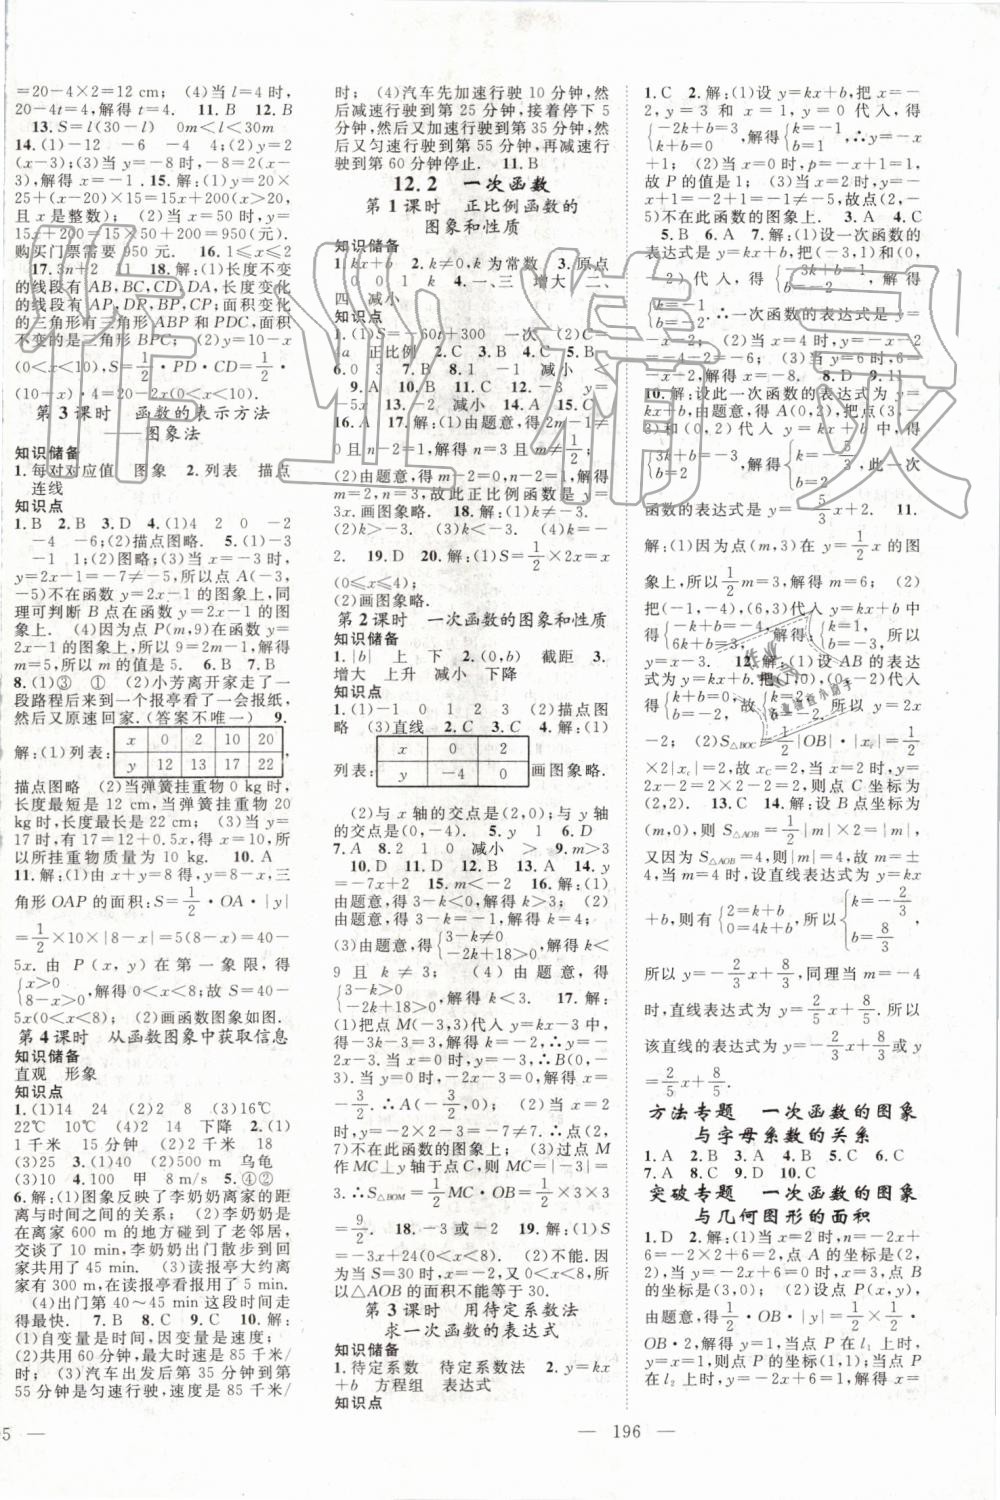 =20-4×2=12 cm; (4)当 l=4 时,
20-4t=4,解得 t=4. 11. B 12. B
13. S=l(30-l) 0m<l<30m
14. (1)-12 -6 -4 4;(2)y=2
(x-3);(3)当 y=-8 时,-8=2(x-
3),解得 x=-1. 15. 解:(1)y=20×
25+(x-20)×15=15x+200(x>20,
且 x 是整数);(2)当 x=50 时,y=
15x+200=15×50+200=950.
购买门票需要 950 元. 16. 1≤x≤2
17. 3n+2 11 18. 解:(1)长度不变
的线段有 AB,BC,CD,DA,长度变化
的线段有 AP,DP,BP,CP;面积变化
的三角形有三角形 ABP 和 PDC,面积
不变的是三角形 BPC;(2)y=10-x
(0<x<10),S=1/2·PD·CD=1/2
·(10-x)·4=20-2x(0<x<10).
第 3 课时 函数的表示方法
——图象法
知识储备
1. 每对对应值 图象 2. 列表 描点
连线
知识点
1. B 2. B 3. D 4. (1)4 2 0 -2
-4 -6;(2)描点图略. 5. (1)-3
-1 1;(2)图略;(3)当 x=-3 时,
y=2x-1=-7≠-5,所以点 A(-3,
-5)不在函数 y=2x-1 的图象上,同
理可判断 B 点在函数 y=2x-1 的图
象上. (4)因为点 P(m,9)在函数 y=
2x-1 的图象上,所以 9=2m-1,解得
m=5,所以 m 的值是 5. 6. B 7. B
8. (1)③ ① (2)小芳离开家走了一
段路程后来到一个报亭看了一会报纸,
然后又原速回家.(答案不唯一) 9.
解:(1)列表: x 0 2 10 20
y 12 13 17 22
描点图略 (2)当弹簧挂重物 0 kg 时,
长度最短是 12 cm;当弹簧挂重物 20
kg 时,长度最长是 22 cm;(3)当 y=
17 时,有 17=12+0.5x,得 x=10,所
以所挂重物质量为 10 kg. 10. A
11. 解:(1)由 x+y=8,得 y=8-x,三
角形 OAP 的面积:S=1/2·OA·|y|
=1/2×10×|8-x|=5(8-x)=40-
5x. 由 P(x,y)在第一象限,得
{x>0 8-x>0,解得 0<x<8. 故 S=40-
5x(0<x<8);(2)画函数图象如图.
第 4 课时 从函数图象中获取信息
知识储备
直观 形象
知识点
1. (1)14 24 (2)2 8 (3)16℃
22℃ 10℃ (4)2 14 下降 2. (1)
1 千米 15 分钟 (2)2 千米 18
(3)25 3. (1)40 (2)500 m 乌龟
(3)10 4. 100 甲 8 5. ④②
6. 解:(1)图象反映了李奶奶离家的距
离与时间之间的关系;(2)李奶奶
在离家 600 m 的地方碰到了老邻居,
交谈了 10 min,李奶奶出门散步到回家
共用了 45 min. (3)读报亭大约离家
有 300 m,在读报亭看报用了 5 min.
(4)出门第 40~45 min 这段时间走
得最快. 7. B 8. C 9. C 10. 解:
(1)自变量是时间,因变量是速度;
(2)共用 60 分钟,最大时速是 85 千米/
时;(3)汽车出发后第 35 分钟到第
55 分钟是匀速行驶,速度是 85 千米/
时;(4)汽车先加速行驶 10 分钟,然
后减速行驶到第 25 分钟,接着停下 5
分钟,然后又加速行驶到第 35 分钟,
然后又匀速行驶到第 55 分钟,再减速行
驶到第 60 分钟停止. 11. B
12.2 一次函数
第 1 课时 正比例函数的
图象和性质
知识储备
1. kx+b 2. k≠0,k 为常数 3. 原点
0 0 1 k 4. 一、三 增大 二、
四 减小
知识点
1. (1)S=-60t+300 一次 (2)C
=1a 正比例 2. C 3. C 4. C 5. B
6. 0 3 7. B 8. 1 -1 减小 <
9. A 10. B 11. B 12. < 13. y=
-5x 减小 14. A 15. C
16. A 17. 解:(1)由题意,得 2m-1≠
0 且 n-2=1,解得 m≠1/2,n=3.
(2)由题意,得 m-2=0,n-2=1,解得
m=2,n=3,故此正比例函数是 y=
3x. 画图象略. 18. 解:(1)k=2.
(2)k>-3. (3)k<-3. (4)k=-
2. 19. D 20. 解:(1)S=1/2×2x=x
(0≤x≤4).
(2)画图象略.
第 2 课时 一次函数的图象和性质
知识储备
1. |b| 上 下 2. (0,b) 截距 3.
增大 上升 减小 下降
知识点
1. (1)-1 0 1 2 3 (2)描点图
略 (3)直线 2. C 3. C 4. 解:(1)
列表: x 0 2 画图象略.
y -4 0
(2)与 x 轴的交点是(2,0);与 y 轴
的交点是(0,-4). 5. y 1 6. D
7. A 8. 2 1 0 减小 > 9. m>3
10. D 11. D 12. B 13. A 14. y
=-7x+2 15. m<-2 16. 解:(1)由
题意,得 3-k<0,解得 k>3;(2)由
题意,得 3-k=-1,解得 k=4.
(3)由题意,得{3-k≠0 -2k+18>0,解得 k<
9 且 k≠3;(4)由题意,得
{3-k>0 -2k+18>0,解得 k<3. 17. 解:
(1)把点 M(-3,-3)代入 y=kx-3 中,
得-3k-3=-3,解得 k=-2,∴y=-2x
-3. 当 y=0 时,-2x-3=0,解得 x=
-3/2. ∴A(-3/2,0). (2)当 x=2
时,y=-2×2-3=-7≠7,∴点(2,
7)不在此函数的图象上;(3)过点 M
作 MC⊥y 轴于点 C,则 MC=|-3|=
3. ∴S△BOM=1/2MC·OB=1/2×3×3=
9/2. 18. -3 或-2 19. 解:(1)S
=-3x+24(0<x<8);(2)不能.因为
当-3x+24=30 时,x=-2<0,所
以△AOB 的面积不能等于 30.
第 3 课时 用待定系数法
求一次函数的表达式
知识储备
1. 待定系数 待定系数法 2. y=kx
+b 方程组 表达式
知识点
1. C 2. 解:(1)设 y=kx+b,把 x=-
2,y=3 和 x=1,y=0 代入,得
{-2k+b=3 k+b=0,解得{k=-1 b=1 ∴y=-x
+1;(2)当 x=0 时,p=-x+1=1,
故 P 的值是 1;(3)当 x=-2 时,y=-
x+1=-2+1=-1≠-5,故点(-2,-
5)不在此函数的图象上. 3. A 4. C
5. B 6. A 7. 解:(1)设一次函数的
表达式为 y=kx+b,把(-3,1)和(0,
-2)代入,得{-3k+b=1 b=-2,解得
{k=-1 b=-2,∴一次函数的表达式是 y=
-x-2;(2)当 x=4 时,y=-x-2=
-4-2=-6;(3)当 y=6 时,6=-x
-2,解得 x=-8. 8. D 9. 11
10. 解:设此一次函数的表达式为 y=
kx+b,由题意,得 A(0,2),把点(3,-
3)和(0,2)代入 y=kx+b,得
函数的表达式是 y=-5/3x+2. 11.
解:(1)因为点(m,3)在 y=1/2x 的图
象上,所以 1/2m=3,解得 m=6;(2)
把(-1,-4),(6,3)代入 y=kx+b,得
{-k+b=-4 6k+b=3,解得{k=1 b=-3 ∴y=
x-3. 12. 解:(1)设 AB 的表达式
为 y=kx+b,把(1,0),(0,-2)代入得
{k+b=0 b=-2,故 y=2x
-2;(2)S△BOC=1/2|OB|·|xc|=1/2
×2|xc|=2,故 xc=2,当 x=2 时,y=
2x-2=2×2-2=2,则点 C 坐标为
(2,2). 13. C 14. 解:设 B 点坐标为
(m,0),则 S△AOB=1/2|m|×2=|m|,
又因为 S△AOB=4,所以|m|=4,故 m=±
4,当 m=4 时,设直线表达式为 y=kx
+b,则有{2=k+b 0=4k+b,所以{k=-2/3 b=8/3
所以 y=-2/3x+8/3,同理当 m=-4
时,直线表达式为 y=2/5x+8/5. 所以
该直线的表达式为 y=-2/3x+8/3 或 y
=2/5x+8/5.
方法专题 一次函数的图象
与字母系数的关系
1. A 2. B 3. C 4. B 5. C 6. C
7. A 8. B 9. A
突破专题 一次函数的图象
与几何图形的面积
1. D 2. 解:(1)当 x=2 时,n=-2x+
6=-2×2+6=2,点 A 的坐标是(2,
2);当 y=0 时,-2x+6=0,x=3,点 B
的坐标是(3,0);(2)设点 P(x,y),
由题意,得 1/2·OB·|y|=1/2×1/2·
OB·2,解得 y=±1. 当点 P 在 l₁ 上
时,y=x=1,点 P 的坐标是(1,1);当点 P
在 l₂ 上时,y=-2x+6=1,解得
— 196 —